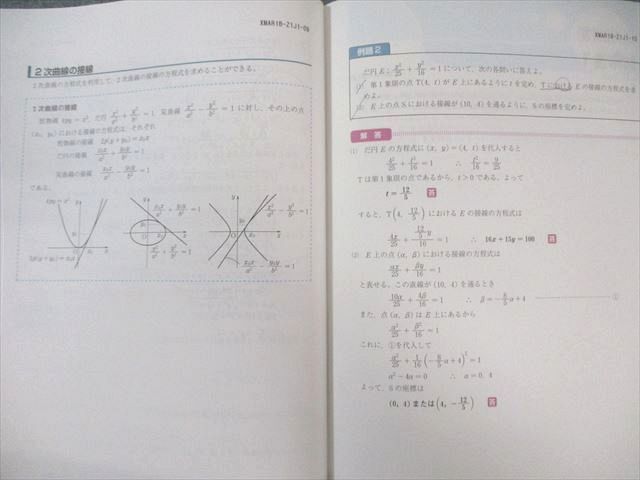 XMAR1B-Z1J1-09
2次曲線の接線
2次曲線の方程式を利用して，2次曲線の接線の方程式を求めることができる。
2次曲線の接線
放物線 4py = x², だ円 x²/a² + y²/b² = 1, 双曲線 x²/a² − y²/b² = 1 に対し，その上の点
(x₁, y₁) における接線の方程式は，それぞれ
放物線の接線 2p(y + y₁) = x₁x
だ円の接線 x₁x/a² + y₁y/b² = 1
双曲線の接線 x₁x/a² − y₁y/b² = 1
である。
4py = x²
2p(y + y₁) = x₁x
x₁x/a² + y₁y/b² = 1
x²/a² + y²/b² = 1
x²/a² − y²/b² = 1
x₁x/a² − y₁y/b² = 1
XMAR1B-Z1J1-10
例題2
だ円 E : x²/25 + y²/16 = 1 について，次の各問いに答えよ。
(1) 第1象限の点 T(4, t) が E 上にあるように t を定め，T における E の接線の方程式を求めよ。
(2) E 上の点 S における接線が (10, 4) を通るように，S の座標を定めよ。
解答
(1) だ円 E の方程式に (x, y) = (4, t) を代入すると
4²/25 + t²/16 = 1 ∴ t²/16 = 9/25
T は第1象限の点であるから，t > 0 である。よって
t = 12/5 答
すると，T(4, 12/5) における E の接線の方程式は
4x/25 + (12/5)y/16 = 1 ∴ 16x + 15y = 100 答
(2) E 上の点 (α, β) における接線の方程式は
αx/25 + βy/16 = 1
と表せる。この直線が (10, 4) を通るとき
10α/25 + 4β/16 = 1 ∴ β = −8/5 α + 4 ①
また，点 (α, β) は E 上にあるから
α²/25 + β²/16 = 1
これに，①を代入して
α²/25 + 1/16(−8/5 α + 4)² = 1
α² − 4α = 0 ∴ α = 0, 4
よって，S の座標は
(0, 4) または (4, −12/5) 答